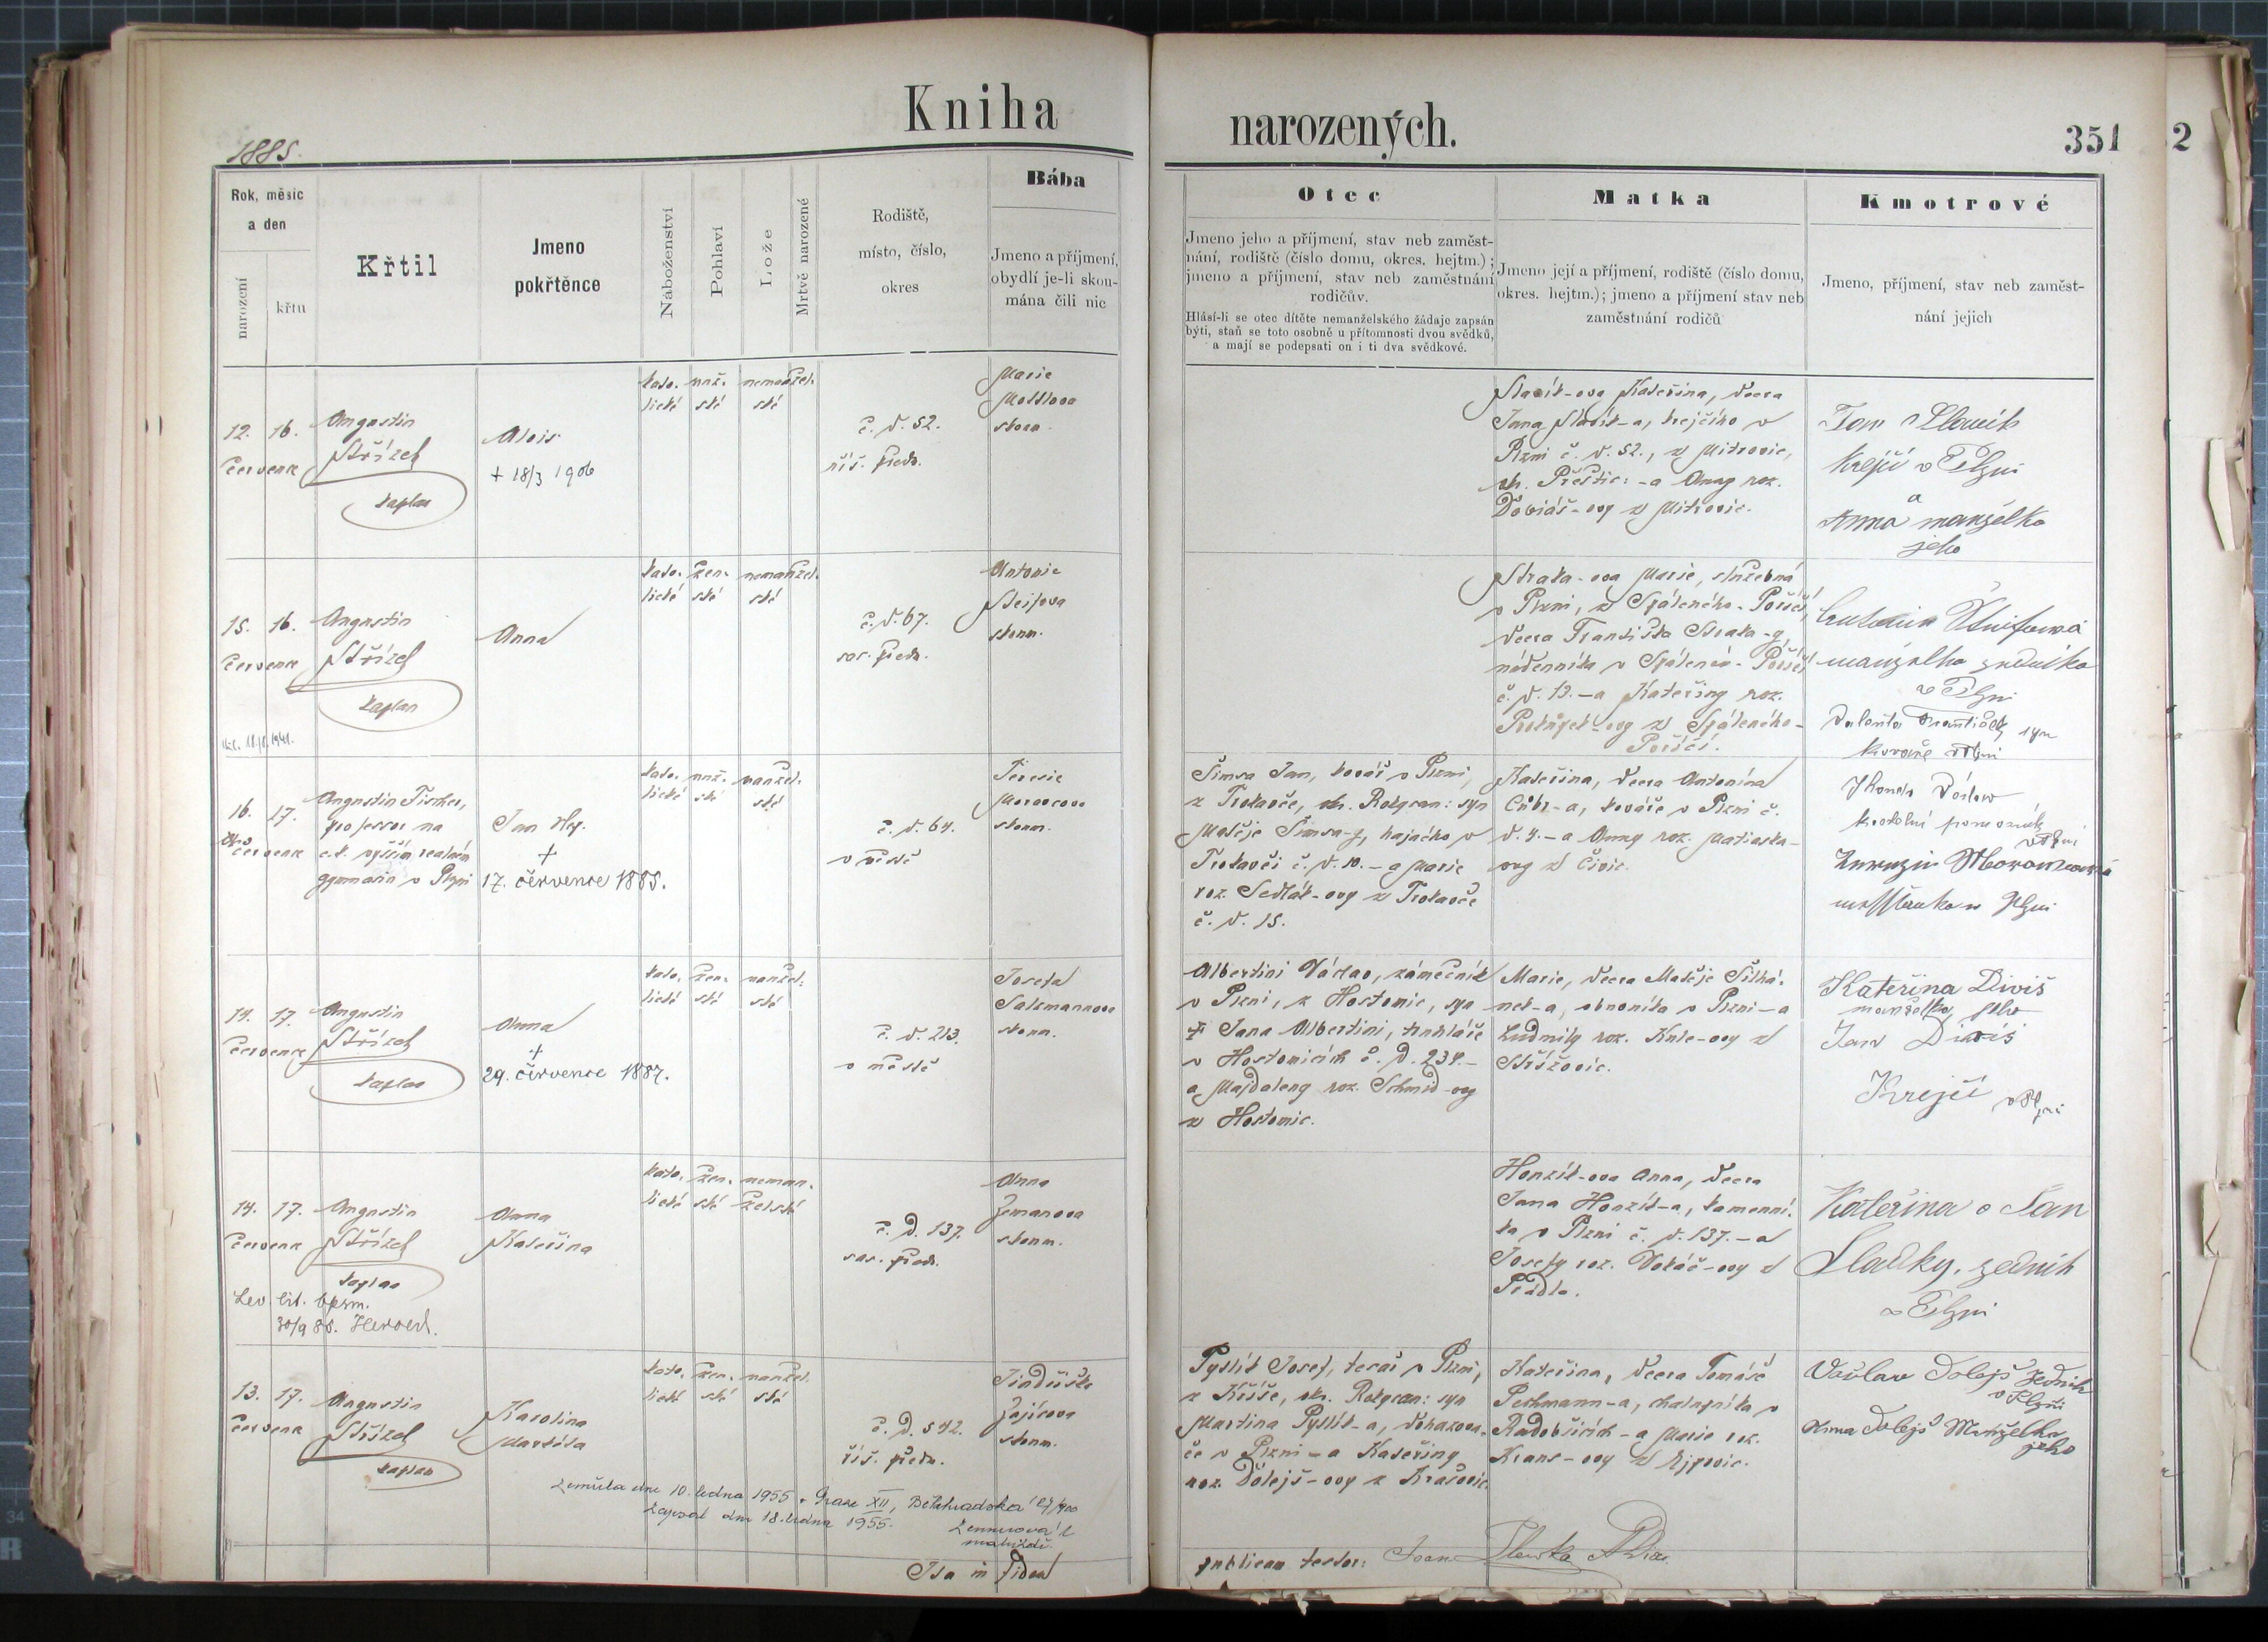 Kniha
narozených.
351
2
1885.
Rok, měsíc
a den
narození
křtu
Křtil
Jmeno
pokřtěnce
Náboženství
Pohlaví
Lože
Mrtvě narozené
Rodiště,
místo, číslo,
okres
Bába
Jmeno a příjmení,
obydlí je-li skou-
mána čili nic
Otec
Jmeno jeho a příjmení, stav neb zaměst-
nání, rodiště (číslo domu, okres. hejtm.);
jmeno a příjmení, stav neb zaměstnání
rodičův.
Hlásí-li se otec dítěte nemanželského žádaje zapsán
býti, staň se toto osobně u přítomnosti dvou svědků,
a mají se podepsati on i ti dva svědkové.
Matka
Jmeno její a příjmení, rodiště (číslo domu,
okres. hejtm.); jmeno a příjmení stav neb
zaměstnání rodičů
Kmotrové
Jmeno, příjmení, stav neb zaměst-
nání jejich
12. 16.
července
Augustin
Střízek
kaplan
Alois
+ 18/3 1906
kato-
lické
muž-
ské
nemanžel-
ské
č. d. 52.
říš. předm.
Marie
skoum.
Slavík-ova Kateřina, dcera
Jana Slavík-a, krejčího v
Plzni č. d. 52., z Mitrovic,
ok. Přeštic: -a Anny roz.
Tobiáš-ovy z Mitrovic.
Jan Slavík
krejčí v Plzni
a
Anna manželka
jeho
15. 16.
července
Augustin
Střízek
kaplan
Anna
kato-
lické
žen-
ské
nemanžel-
ské
č. d. 67.
sas. předm.
Antonie
Steifova
skoum.
Straka-ova Marie, služebná
v Plzni, z Spáleného-Poříčí,
dcera Františka Straka-y,
nádenníka v Spáleném-Poříčí
č. d. 13. -a Kateřiny roz.
Prokůpek-ovy z Spáleného-
Poříčí.
manželka zedníka
v Plzni
Valenta František, syn
kováře v Plzni
16. 17.
července
Augustin Fischer,
professor na
c.k. vyšším realném
gymnasiu v Plzni
Jan Nep.
+
17. července 1885.
kato-
lické
muž-
ské
manžel-
ské
č. d. 64.
v městě
Teresie
Moravcova
skoum.
Šimsa Jan, kovář v Plzni,
z Trokavče, ok. Rokycan: syn
Matěje Šimsa-y, hajného v
Trokavči č. d. 10. -a Marie
roz. Sedlák-ovy z Trokavče
č. d. 15.
Kateřina, dcera Antonína
Cübr-a, kováře v Plzni č.
d. 4. -a Anny roz. Matiaska-
ovy z Čivic.
v Plzni
14. 17.
července
Augustin
Střízek
kaplan
Anna
+
29. července 1887.
kato-
lické
žen-
ské
manžel-
ské
č. d. 213.
v městě
Josefa
Salzmannova
skoum.
Albertini Václav, zámečník
v Plzni, z Hostomic, syn
Jana Albertini, truhláře
v Hostomicích č. d. 234.-
a Majdaleny roz. Schmid-ovy
z Hostomic.
Marie, dcera Matěje Šilhá-
nek-a, obuvníka v Plzni -a
Ludmily roz. Kule-ovy z
Střížovic.
Kateřina Diviš
manželka jeho
Jan Diviš
Krejčí v Plzni
14. 17.
července
Augustin
Střízek
kaplan
Anna
Kateřina
kato-
lické
žen-
ské
neman-
želské
č. d. 137.
sas. předm.
Anna
Zemanova
skoum.
Honzík-ova Anna, dcera
Jana Honzík-a, kamenní-
ka v Plzni č. d. 137. -a
Josefy roz. Vokáč-ovy z
Prádla.
Kateřina a Jan
Sladky, zednik
v Plzni
Lev. lit. bpsm.
30/9 85.
13. 17.
července
Augustin
Střízek
kaplan
Karolina
Markéta
kato-
lické
žen-
ské
manžel-
ské
č. d. 542.
říš. předm.
Zajícova
skoum.
Pyslík Josef, tesař v Plzni,
z Kříše, ok. Rokycan: syn
Martina Pyslík-a, dohazova-
če v Plzni -a Kateřiny
roz. Dolejš-ovy z Krašovic.
Kateřina, dcera Tomáše
Pechmann-a, chalupníka v
Radobčicích -a Marie roz.
Kraus-ovy z Ejpovic.
Václav Dolejš Zednik
v Plzni
Anna Dolejš Manželka
jeho
Zemřela dne 10. ledna 1955 v Praze XII, Bělehradská
Zapsal dne 18. ledna 1955.
Ita in fidem
publicam testor: